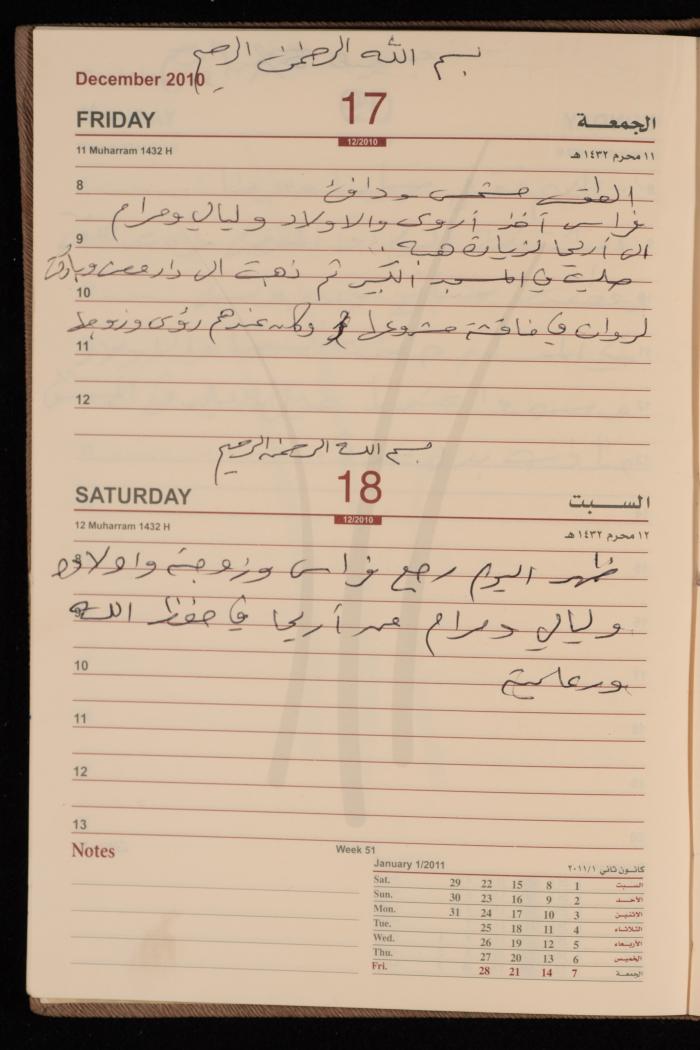 بسم الله الرحمن الرحيم
December 2010
FRIDAY 17 الجمعة
12/2010
11 Muharram 1432 H ١١ محرم ١٤٣٢ هـ
8 الطقس مشمس ودافئ
فراس أخذ أروى والاولاد وليالي ومرام
9 الى أريحا لزيارة هبه..
صليت في المسجد الكبير ثم ذهبت الى دار
10
لروان في مناقشة مشروعها وكان عندهم رؤى وزوجها
11
12
بسم الله الرحمن الرحيم
SATURDAY 18 السبت
12/2010
12 Muharram 1432 H ١٢ محرم ١٤٣٢ هـ
ظهر اليوم رجع فراس وزوجته واولاده
وليالي ومرام من أريحا في حفظ الله
10 ورعايته
11
12
13
Notes
Week 51
January 1/2011 كانون ثاني ٢٠١١/١
Sat. 29 22 15 8 1 السبت
Sun. 30 23 16 9 2 الأحد
Mon. 31 24 17 10 3 الاثنين
Tue. 25 18 11 4 الثلاثاء
Wed. 26 19 12 5 الأربعاء
Thu. 27 20 13 6 الخميس
Fri. 28 21 14 7 الجمعة